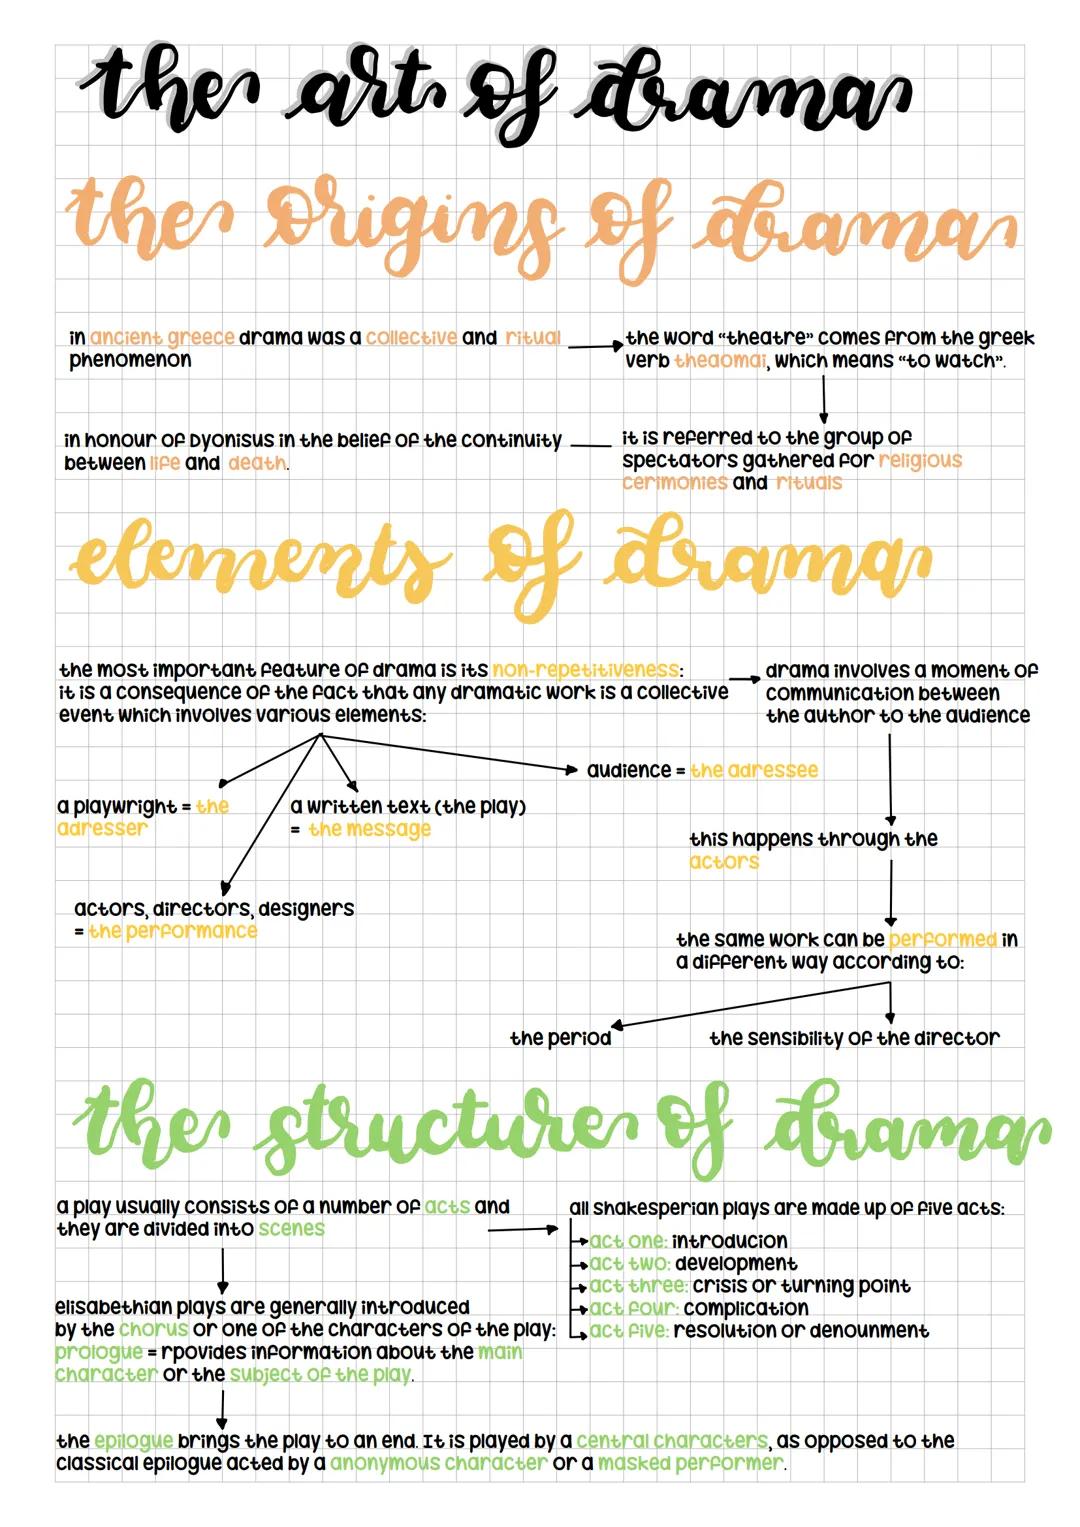 the art of drama
the origins of drama
in ancient greece drama was a collective and ritual
phenomenon
the word “theatre” comes from the greek
verb theaomai, which means “to watch”.
it is referred to the group of
spectators gathered for religious
cerimonies and rituals
in honour of Dyonisus in the belief of the continuity
between life and death.
elements of drama
the most important feature of drama is its non-repetitiveness:
it is a consequence of the fact that any dramatic work is a collective
event which involves various elements:
a playwright = the
adresser
a written text (the play)
= the message
actors, directors, designers
= the performance
audience = the adressee
drama involves a moment of
communication between
the author to the audience
this happens through the
actors
the same work can be performed in
a different way according to:
the period
the sensibility of the director
the structure of drama
a play usually consists of a number of acts and
they are divided into scenes
all shakesperian plays are made up of five acts:
act one: introducion
act two: development
act three: crisis or turning point
act four: complication
act five: resolution or denounment
elisabethian plays are generally introduced
by the chorus or one of the characters of the play:
prologue = rpovides information about the main
character or the subject of the play.
the epilogue brings the play to an end. It is played by a central characters, as opposed to the
classical epilogue acted by a anonymous character or a masked performer.